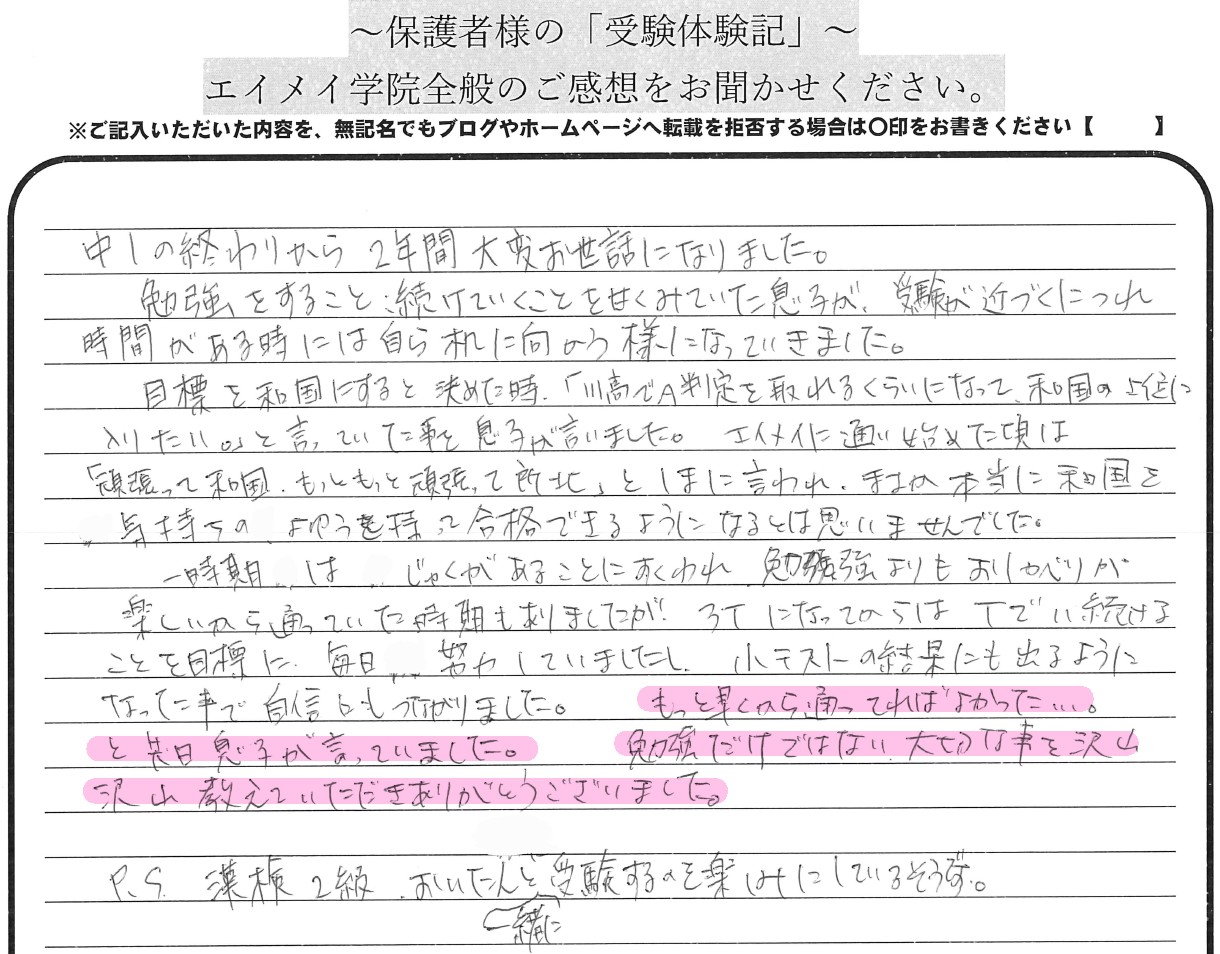 ～保護者様の「受験体験記」～
エイメイ学院全般のご感想をお聞かせください。
※ご記入いただいた内容を、無記名でもブログやホームページへ転載を拒否する場合は〇印をお書きください【　　　】
中1の終わりから 2年間 大変お世話になりました。
勉強をすること、続けていくことを甘くみていた息子が、受験が近づくにつれ
時間がある時には自ら机に向かう様になっていきました。
目標を和国にすると決めた時、「川高でA判定を取れるくらいになって、和国の上位に
入りたい。」と言っていた事を息子が言いました。 エイメイに通い始めた頃は
「頑張って和国、もっともっと頑張って所北」と 言われ、まさか本当に和国を
気持ちの よゆうを持って合格できるようになるとは思いませんでした。
一時期 は じゃくがあることにすくわれ 勉強よりもおしゃべりが
楽しいから通っていた時期もありましたが、3Tになってからは Tでい続ける
ことを目標に、毎日 努力していましたし、小テストの結果にも出るように
なった事で自信にもつながりました。 もっと早くから通ってればよかった…。
と先日息子が言っていました。 勉強だけではない 大切な事を沢山
沢山 教えていただきありがとうございました。
P.S. 漢検2級 、おいたんと受験するのを楽しみにしているそうです。
一緒に